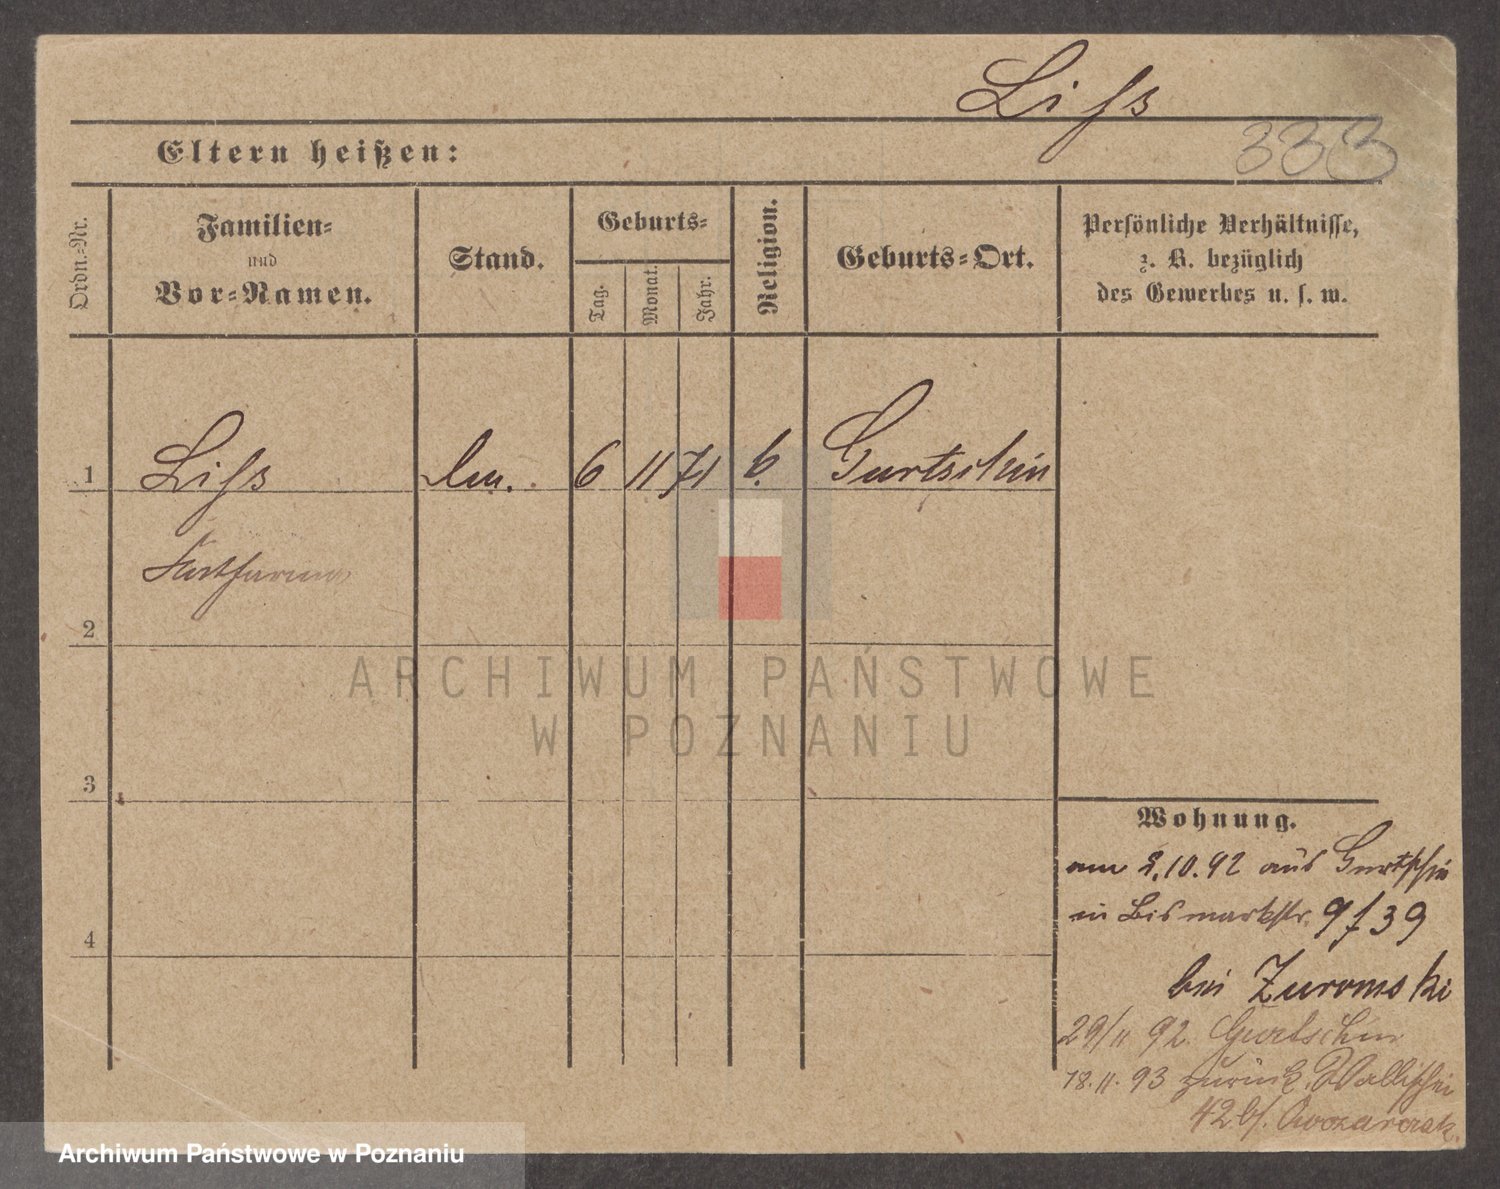 Liſs
333
Eltern heißen:
Ordn.-Nr.
Familien-
und
Vor-Namen.
Stand.
Geburts-
Tag.
Monat.
Jahr.
Religion.
Geburts-Ort.
Persönliche Verhältnisse,
z. B. bezüglich
des Gewerbes u. s. w.
1 Liſs 6 11 71 Gurtschin
Katharina
2
3
4
Wohnung.
am 2.10.92 aus Gurtschin
in Bismarkstr. 9 / 39
bei Zuromski
29/11 92. Gurtschin
18.11.93 zurück Wallischei
42 b/.
ARCHIWUM PAŃSTWOWE
W POZNANIU
Archiwum Państwowe w Poznaniu